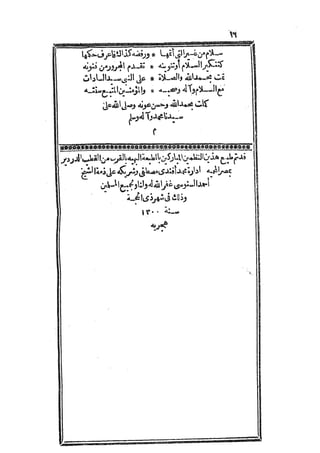 ١٦
سلام من غير التي أتمها * ورفضه كذا لك فاعرف حكمها
كتنكير السلام أو تنوينه * تقدم المجرور من فنونه
تمت بحمد الله والصلاة * على النبي سيد السادات
مع السلام وآله وصحبه * والمؤمنين المتبع سنته
كملت بحمد الله وحسن عونه وصلى الله على
سيدنا محمد وآله وسلم
م
قد تم طبع هذين النظمين المباركين بالمطبعة البهية بالقرب من القطب الدردير
بمصر المحمية ادارة محمد أفندى مصطفى وشريكه على ذمة الشيخ
أحمد السنوسى غفر الله له ولنا ولجميع المسلمين
وذلك فى شهر ذى الحجة
سنة ١٣٠٠
هجريه